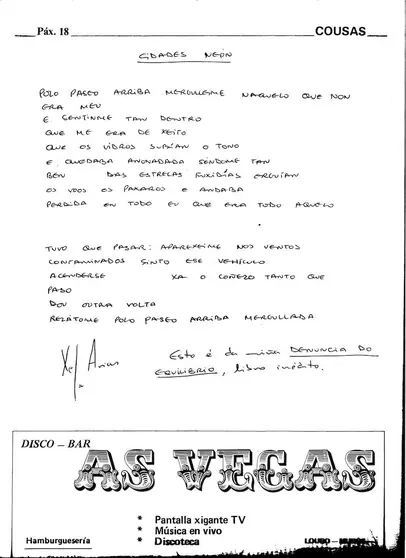 Páx. 18
COUSAS
CIDADES NEÓN
POLO PASEO ARRIBA MERGULLEIME NAQUELO QUE NON
ERA MEU
E SENTINME TAN DENTRO
QUE ME ERA DE XEITO
QUE OS VIDROS SUPÍAN O TONO
E QUEDABA ANONADADA SÉNDOME TAN
BEN DAS ESTRELAS FUXIDÍAS ERGUÍAN
OS VOOS OS PAXAROS E ANDABA
PERDIDA EN TODO EU QUE ERA TODO AQUELO
TUVO QUE PASAR: APAREXEIME NOS VENTOS
CONTAMINADOS SINTO ESE VEHÍCULO
ACENDERSE XA O COÑEZO TANTO QUE
PASO
DOU OUTRA VOLTA
RELÁTOME POLO PASEO ARRIBA MERGULLADA
Arias
Esto é da miña DENUNCIA DO
EQUILIBRIO, libro inédito.
DISCO – BAR
AS VEGAS
* Pantalla xigante TV
* Música en vivo
* Discoteca
Hamburguesería